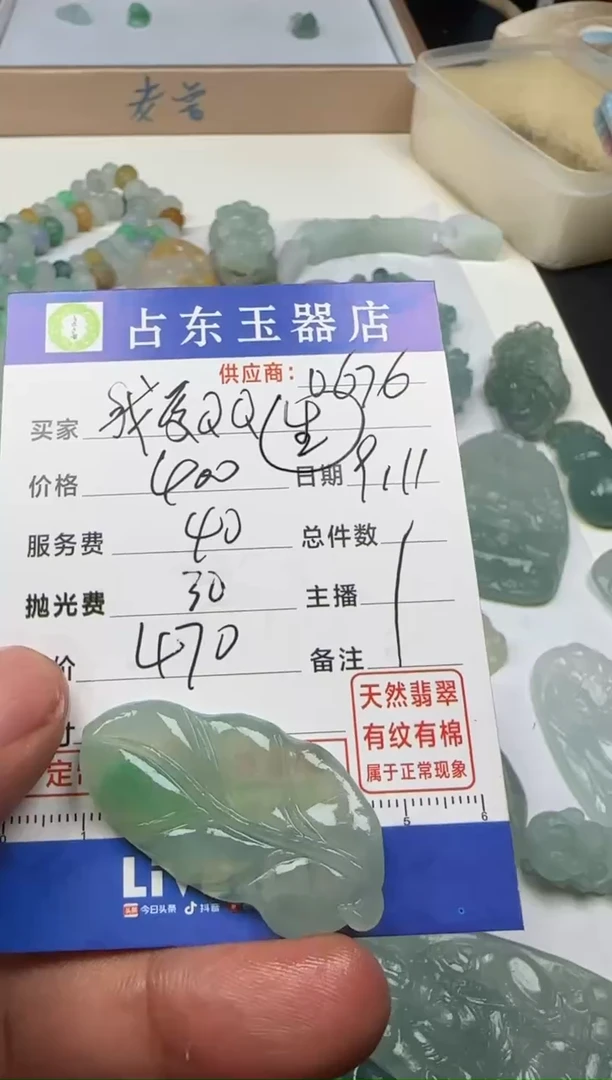 占东玉器店
供应商：0676
买家 我爱QQ(生)
价格 400 日期 9.11
服务费 40 总件数
抛光费 30 主播
价 470 备注
天然翡翠
有纹有棉
属于正常现象
定
1 5 6
LIV
头条 今日头条 抖音